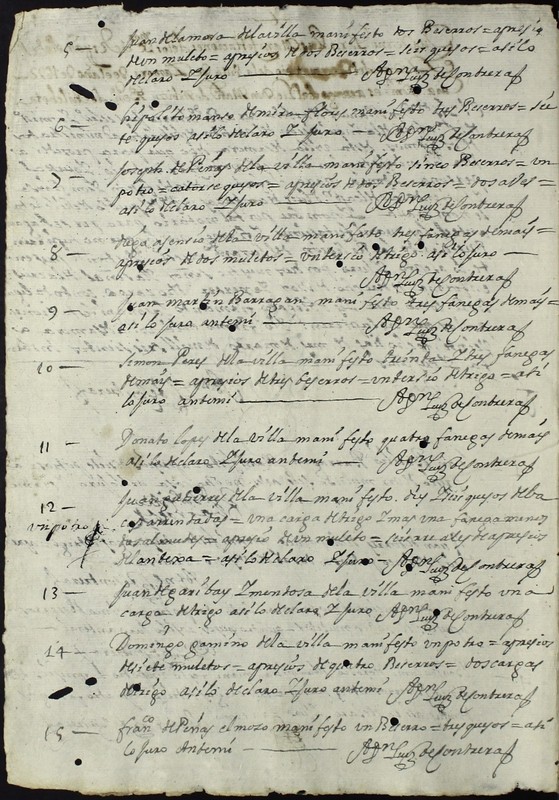 5 — Juan de la mosa de la villa manifesto dos Beserros = apresio
de un muleto = apresios de dos Beserros = seis quesos = asi lo
declaro Y Juro — Agn Luis de Contreras
6 — hipolito manso de mira flores manifesto tres Beserros = sie
te quesos asi lo declaro Y Juro — Agn Luis de Contreras
7 — Joseph de Peñas de la villa manifesto sinco Beserros = un
potro = catorse quesos = apresios de dos Beserros = dos abes =
asi lo declaro Y Juro — Agn Luis de Contreras
8 — asensio de la villa manifesto tres fanegas de mais =
apresios de dos muletos = un tersio de trigo = asi lo Juro —
Agn Luis de Contreras
9 — Juan martin Barragan manifesto tres fanegas de mais =
asi lo Juro antemi — Agn Luis de Contreras
10 — Simon Peres de la villa manifesto treinta Y tres fanegas
de mais = apresios de tres beserros = un tersio de trigo = asi
lo Juro antemi — Agn Luis de Contreras
11 — Donato lopes de la villa manifesto quatro fanegas de mais
asi lo declaro Y Juro antemi — Agn Luis de Contreras
12 — Juan gutierres de la villa manifesto dies Y seis quesos de
= una carga de trigo Y mas una fanega menos
un potro
= apresio de un muleto = seis reales de apresios
= asi lo declaro Y Juro — Agn Luis de Contreras
13 — Juan de garibay Y mendosa de la villa manifesto una
carga de trigo asi lo declaro Y Juro Agn Luis de Contreras
14 — Domingo gamino de la villa manifesto un potro = apresios
de siete muletos = apresios de quatro Beserros = dos cargas
de trigo asi lo declaro Y Juro antemi Agn Luis de Contreras
15 — franco de Peñas el moso manifesto un Beserro = tres quesos = asi
lo Juro Antemi — Agn Luis de Contreras